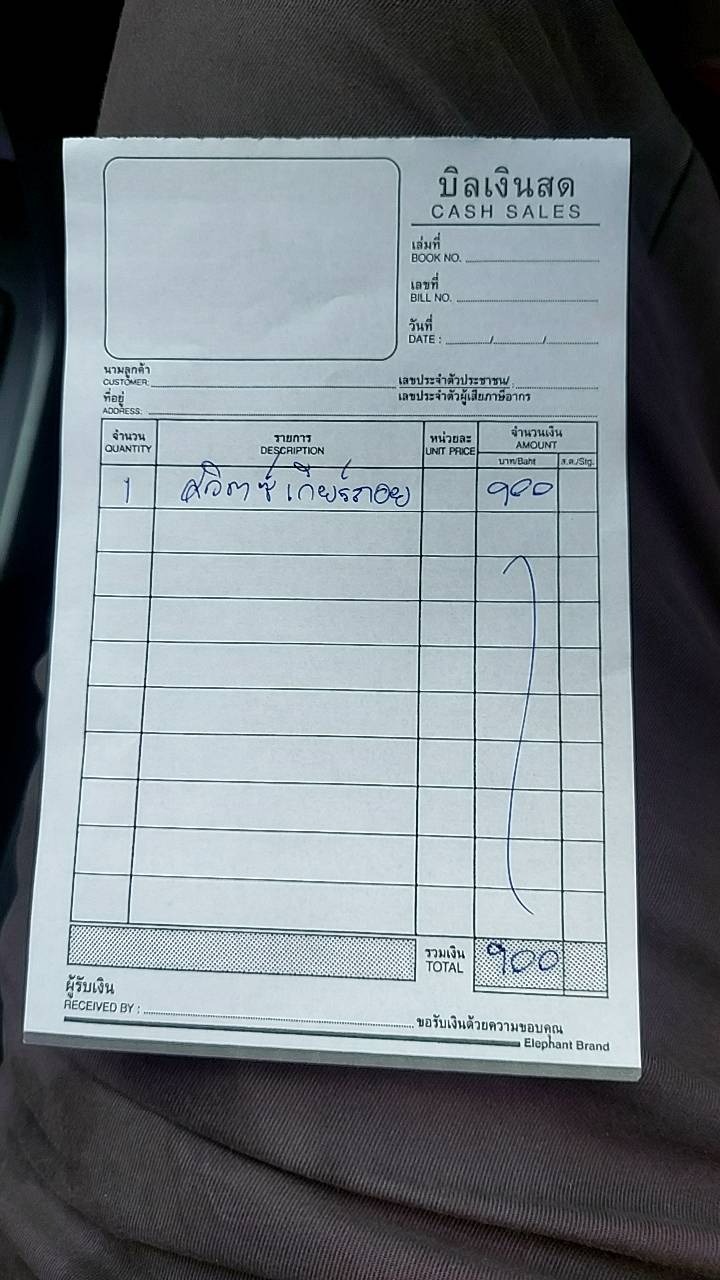 บิลเงินสด
CASH SALES
เล่มที่
BOOK NO.
เลขที่
BILL NO.
วันที่
DATE : / /
นามลูกค้า
CUSTOMER:
เลขประจำตัวประชาชน/
ที่อยู่
ADDRESS:
เลขประจำตัวผู้เสียภาษีอากร
จำนวน รายการ หน่วยละ จำนวนเงิน
QUANTITY DESCRIPTION UNIT PRICE AMOUNT
บาท/Baht ส.ต./Stg.
1 สวิตซ์ เกียร์ถอย 900
รวมเงิน 900
TOTAL
ผู้รับเงิน
RECEIVED BY :
ขอรับเงินด้วยความขอบคุณ
Elephant Brand